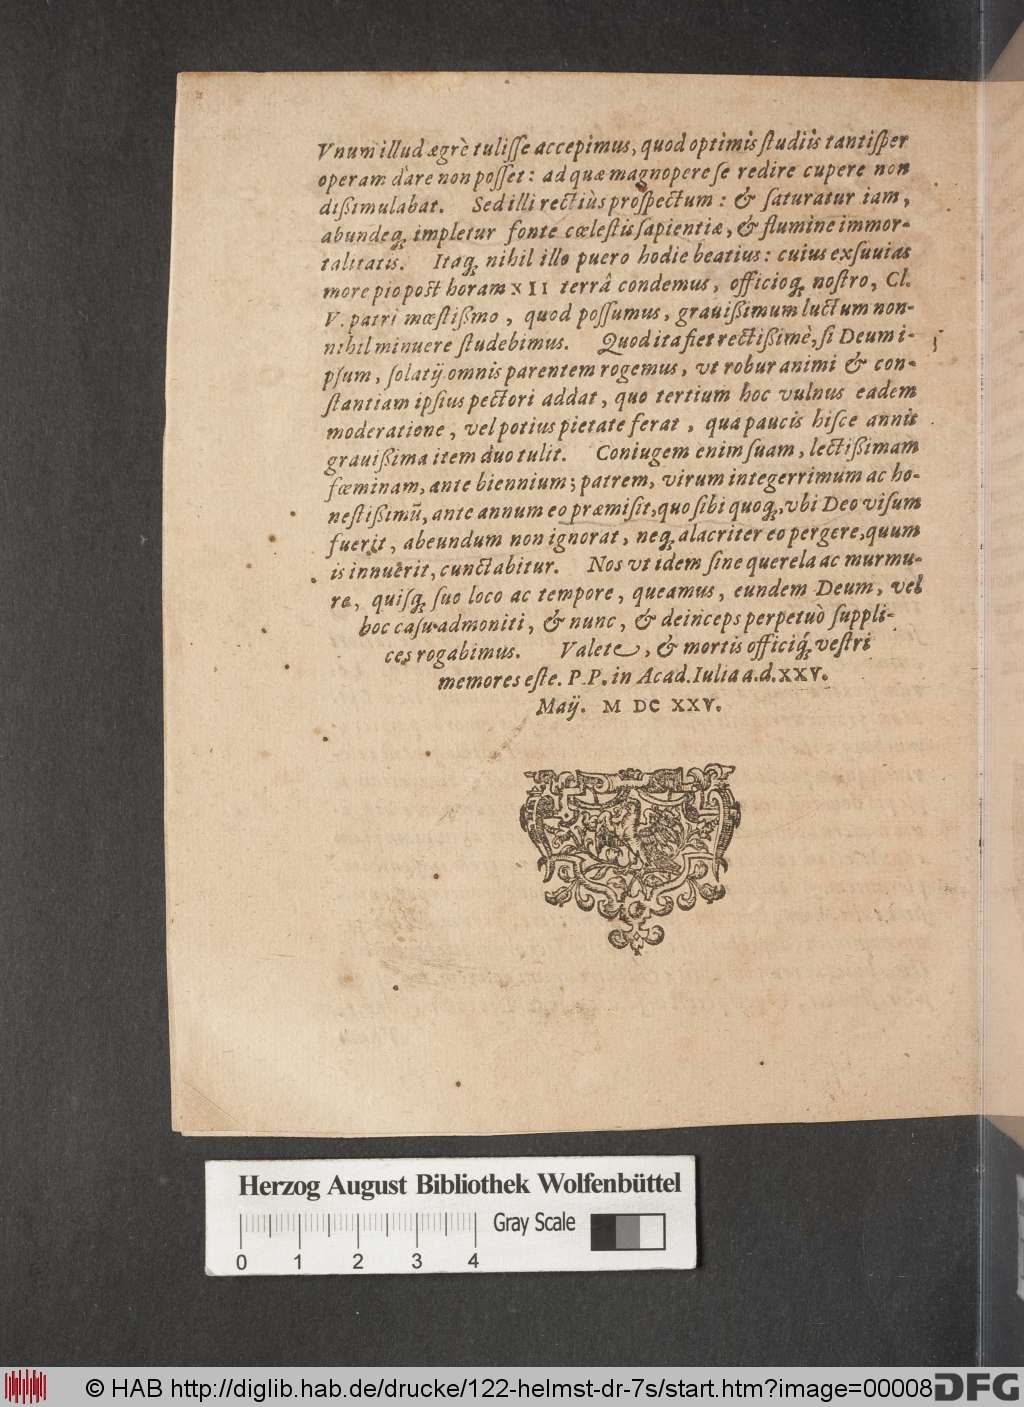 Vnum illud ægrè tulisse accepimus, quod optimis studiis tantisper
operam dare non posset: ad quæ magnopere se redire cupere non
dißimulabat. Sed illi rectiùs prospectum: & saturatur iam,
abundeq; impletur fonte cœlestis sapientiæ, & flumine immor-
talitatis. Itaq; nihil illo puero hodie beatius: cuius exsuuias
more pio post horam XII terrâ condemus, officioq; nostro, Cl.
V. patri mœstißimo, quod possumus, grauißimum luctum non-
nihil minuere studebimus. Quod ita fiet rectißimè, si Deum i-
psum, solatij omnis parentem rogemus, vt robur animi & con-
stantiam ipsius pectori addat, quo tertium hoc vulnus eadem
moderatione, vel potius pietate ferat, qua paucis hisce annis
grauißima item duo tulit. Coniugem enim suam, lectißimam
fœminam, ante biennium; patrem, virum integerrimum ac ho-
nestißimū, ante annum eo præmisit, quo sibi quoq;, vbi Deo visum
fuerit, abeundum non ignorat, neq; alacriter eo pergere, quum
is innuerit, cunctabitur. Nos vt idem sine querela ac murmu-
re, quisq; suo loco ac tempore, queamus, eundem Deum, vel
hoc casu admoniti, & nunc, & deinceps perpetuò suppli-
ces rogabimus. Valete, & mortis officiiq́; vestri
memores este. P.P. in Acad. Iulia a.d. XXV.
Maij. M DC XXV.
Herzog August Bibliothek Wolfenbüttel
Gray Scale
0 1 2 3 4
© HAB http://diglib.hab.de/drucke/122-helmst-dr-7s/start.htm?image=00008
DFG